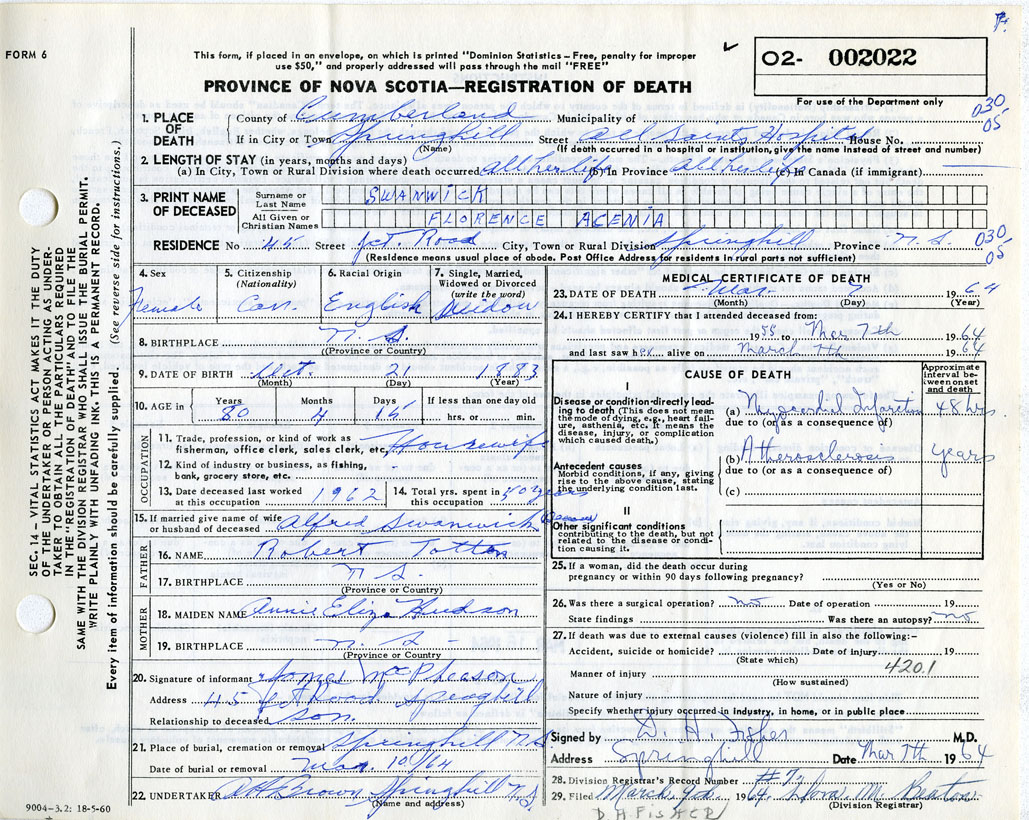 FORM 6
This form, if placed in an envelope, on which is printed "Dominion Statistics – Free, penalty for improper
use $50," and properly addressed will pass through the mail "FREE"
✓ 02- 002022
PROVINCE OF NOVA SCOTIA—REGISTRATION OF DEATH
For use of the Department only
030-
05
1. PLACE OF DEATH
County of Cumberland Municipality of
If in City or Town Springhill Street All Saints Hospital House No.
(Name) (If death occurred in a hospital or institution, give the name instead of street and number)
2. LENGTH OF STAY (in years, months and days)
(a) In City, Town or Rural Division where death occurred all her life (b) In Province all her life (c) In Canada (if immigrant)
3. PRINT NAME OF DECEASED
Surname or Last Name SWANWICK
All Given or Christian Names FLORENCE ACENIA
RESIDENCE No. 45 Street Jct. Road City, Town or Rural Division Springhill Province N.S. 030-
05
(Residence means usual place of abode. Post Office Address for residents in rural parts not sufficient)
4. Sex Female
5. Citizenship (Nationality) Can.
6. Racial Origin English
7. Single, Married, Widowed or Divorced (write the word) Widow
8. BIRTHPLACE N.S.
(Province or Country)
9. DATE OF BIRTH Oct. 21 1883
(Month) (Day) (Year)
10. AGE in Years 80 Months 4 Days 15 If less than one day old hrs. or min.
OCCUPATION
11. Trade, profession, or kind of work as fisherman, office clerk, sales clerk, etc, Housewife
12. Kind of industry or business, as fishing, bank, grocery store, etc. -
13. Date deceased last worked at this occupation 1962
14. Total yrs. spent in this occupation 50 years
15. If married give name of wife or husband of deceased Alfred Swanwick
FATHER
16. NAME Robert Totten
17. BIRTHPLACE N S.
(Province or Country)
MOTHER
18. MAIDEN NAME Annie Eliza Hudson
19. BIRTHPLACE N. S -
(Province or Country
20. Signature of informant James McPhearson
Address 45 Jct Road Springhill
Relationship to deceased son.
21. Place of burial, cremation or removal Springhill N.S
Date of burial or removal Mar. 10/64
22. UNDERTAKER A H Brown Springhill N.S.
(Name and address)
MEDICAL CERTIFICATE OF DEATH
23. DATE OF DEATH Mar. 7 1964
(Month) (Day) (Year)
24. I HEREBY CERTIFY that I attended deceased from:
1955 to Mar 7th 1964
and last saw her alive on March 7th 1964
CAUSE OF DEATH
Approximate interval between onset and death
I
Disease or condition directly leading to death (This does not mean the mode of dying, e.g., heart failure, asthenia, etc. It means the disease, injury, or complication which caused death.)
(a) Myocardial Infarction 48 hrs.
due to (or as a consequence of)
Antecedent causes
Morbid conditions, if any, giving rise to the above cause, stating the underlying condition last.
(b) Atherosclerosis years
due to (or as a consequence of)
(c)
II
Other significant conditions
contributing to the death, but not related to the disease or condition causing it.
25. If a woman, did the death occur during
pregnancy or within 90 days following pregnancy?
(Yes or No)
26. Was there a surgical operation? no Date of operation 19
State findings Was there an autopsy? no.
27. If death was due to external causes (violence) fill in also the following:–
Accident, suicide or homicide? Date of Injury 19
(State which)
Manner of injury 4201
(How sustained)
Nature of injury
Specify whether injury occurred in industry, in home, or in public place
Signed by D. H. Fisher M.D.
Address Springhill Date Mar 7th 1964
28. Division Registrar's Record Number
29. Filed March 9th 1964 M. Beaton
(Division Registrar)
D H FISHER
9004-3.2: 18-5-60
SEC. 14 – VITAL STATISTICS ACT MAKES IT THE DUTY
OF THE UNDERTAKER OR PERSON ACTING AS UNDER-
TAKER TO OBTAIN ALL THE PARTICULARS REQUIRED
IN THE "REGISTRATION OF DEATH" AND TO FILE THE
SAME WITH THE DIVISION REGISTRAR WHO SHALL ISSUE THE BURIAL PERMIT.
WRITE PLAINLY WITH UNFADING INK. THIS IS A PERMANENT RECORD.
Every item of information should be carefully supplied. (See reverse side for instructions.)